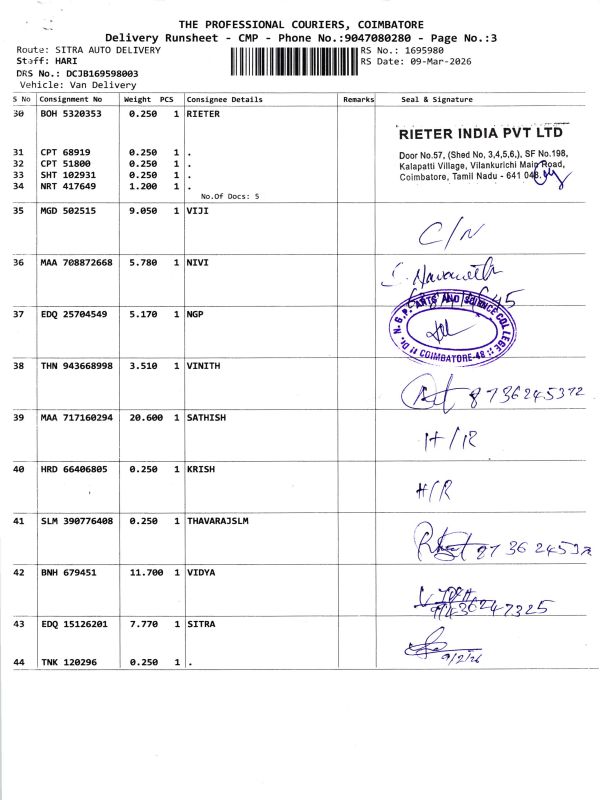 THE PROFESSIONAL COURIERS, COIMBATORE
Delivery Runsheet - CMP - Phone No.:9047080280 - Page No.:3
Route: SITRA AUTO DELIVERY
RS No.: 1695980
Staff: HARI
RS Date: 09-Mar-2026
DRS No.: DCJB169598003
Vehicle: Van Delivery
S No Consignment No Weight PCS Consignee Details Remarks Seal & Signature
30 BOH 5320353 0.250 1 RIETER
RIETER INDIA PVT LTD
Door No.57, (Shed No, 3,4,5,6,), SF No.198,
Kalapatti Village, Vilankurichi Main Road,
Coimbatore, Tamil Nadu - 641 048.
31 CPT 68919 0.250 1 .
32 CPT 51800 0.250 1 .
33 SHT 102931 0.250 1 .
34 NRT 417649 1.200 1 .
No.Of Docs: 5
35 MGD 502515 9.050 1 VIJI
C/N
36 MAA 708872668 5.780 1 NIVI
37 EDQ 25704549 5.170 1 NGP
DR. N.G.P. ARTS AND SCIENCE COLLEGE
COIMBATORE-48
38 THN 943668998 3.510 1 VINITH
8736245372
39 MAA 717160294 20.600 1 SATHISH
H/R
40 HRD 66406805 0.250 1 KRISH
H/R
41 SLM 390776408 0.250 1 THAVARAJSLM
42 BNH 679451 11.700 1 VIDYA
43 EDQ 15126201 7.770 1 SITRA
9/2/26
44 TNK 120296 0.250 1 .